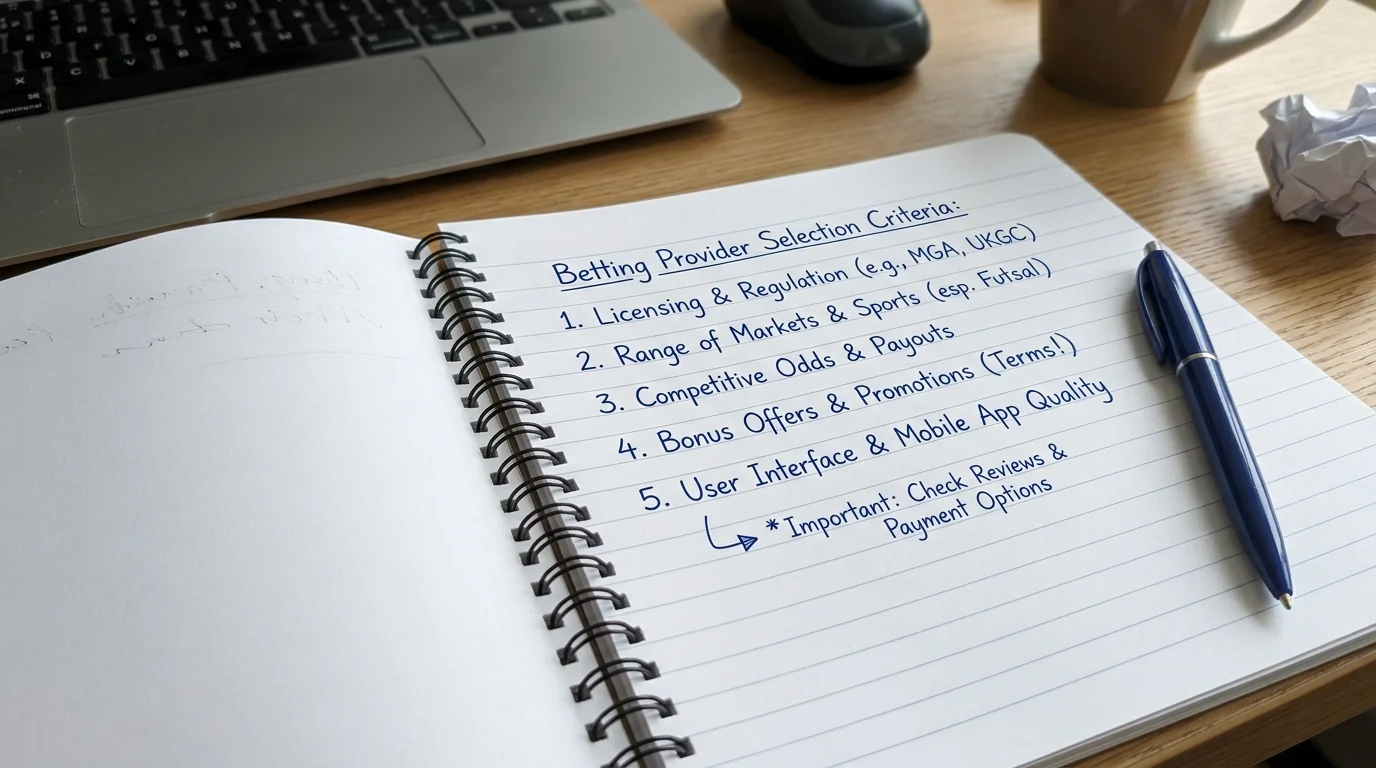 Betting Provider Selection Criteria:
1. Licensing & Regulation (e.g., MGA, UKGC)
2. Range of Markets & Sports (esp. Futsal)
3. Competitive Odds & Payouts
4. Bonus Offers & Promotions (Terms!)
5. User Interface & Mobile App Quality
*Important: Check Reviews &
Payment Options